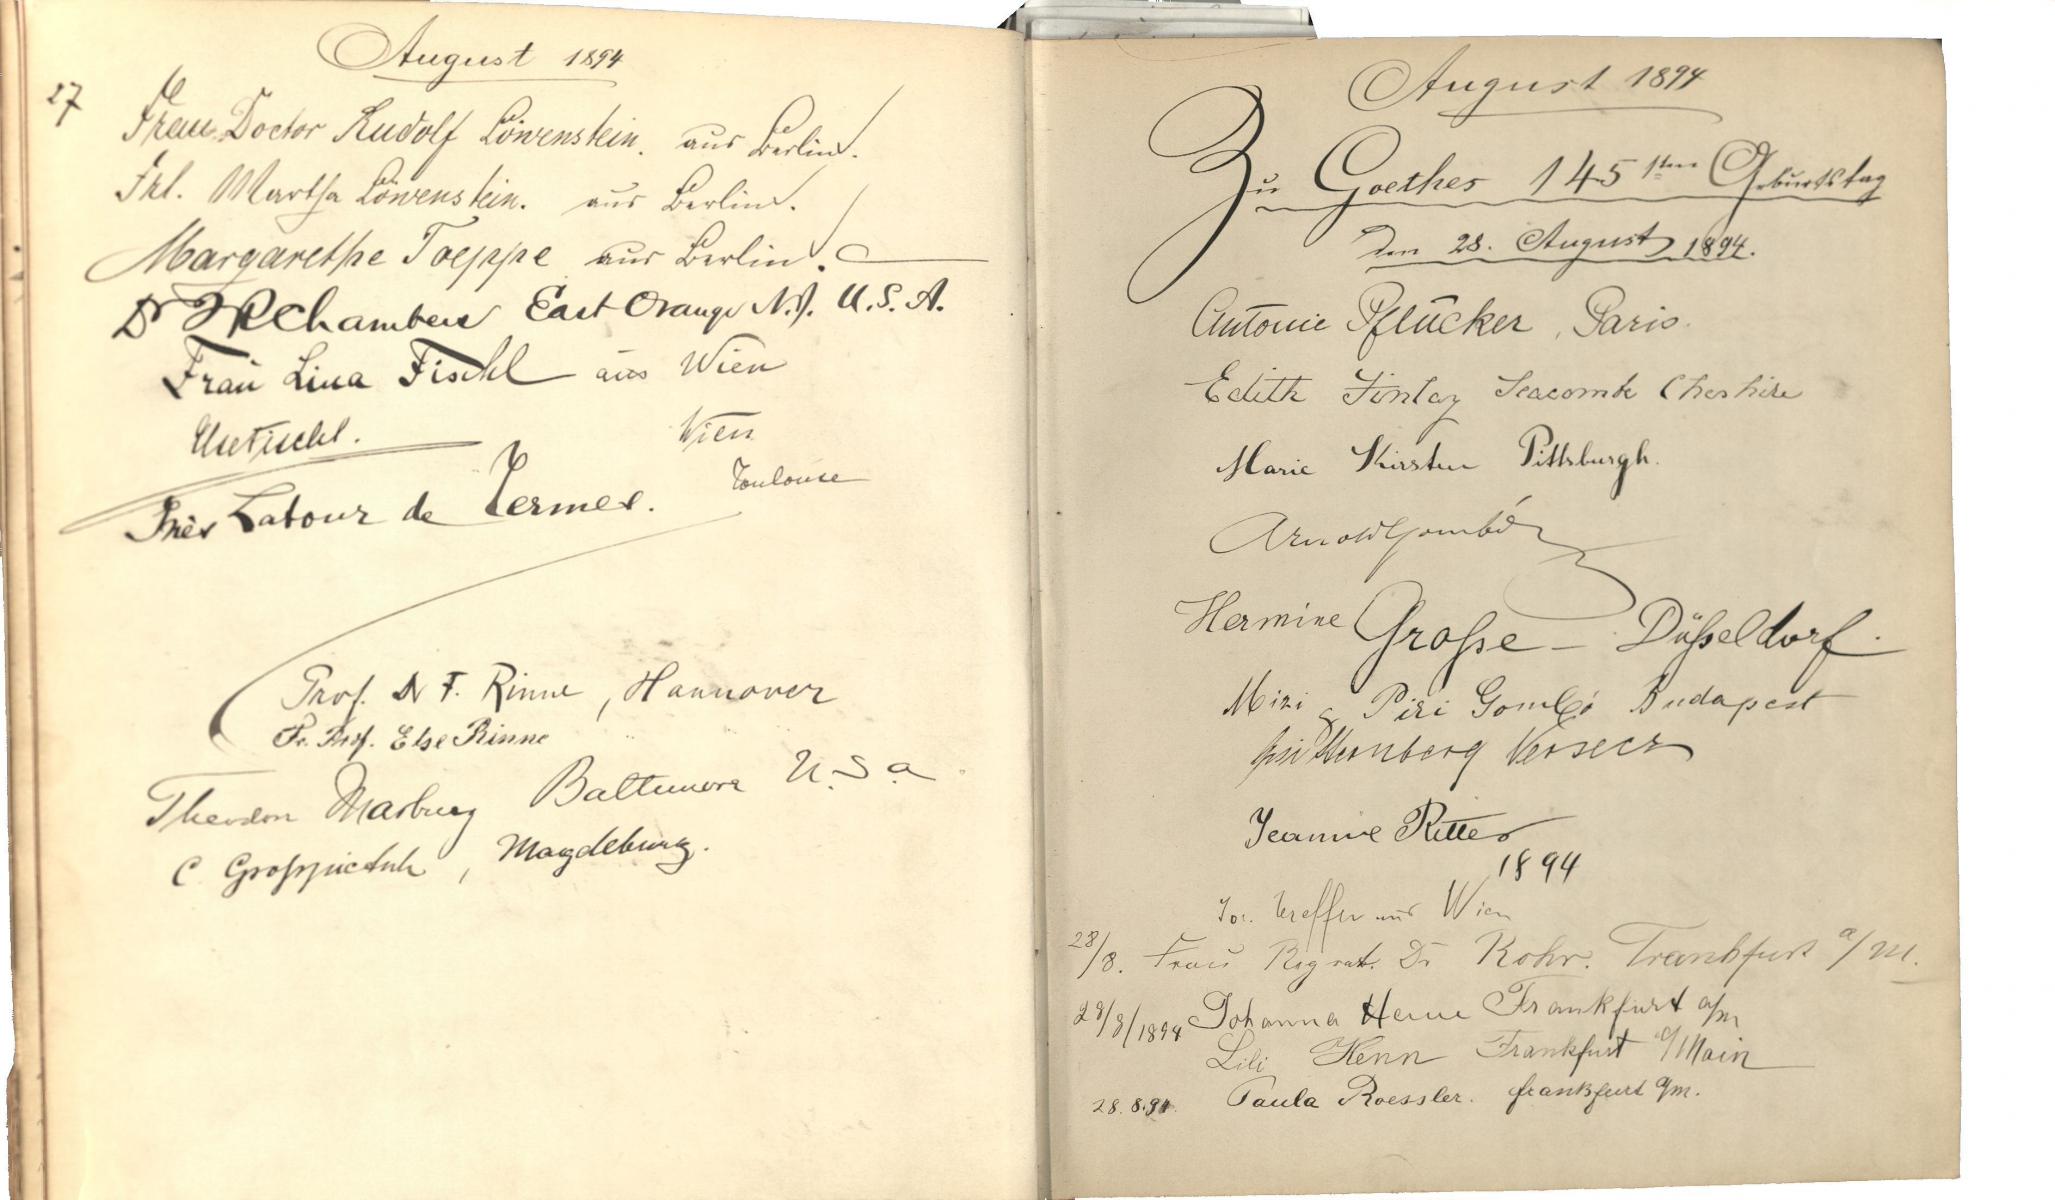 August 1894
27
Frau Doctor Rudolf Löwenstein. aus Berlin.
Frl. Martha Löwenstein. aus Berlin.
Margarethe Toeppe aus Berlin.
Dr Chambers East Orange N.J. U.S.A.
Frau Lina Fischl aus Wien
Wien
Inès Latour de Toulouse
Prof. Dr F. Rinne, Hannover
Fr. Prof. Else Rinne
Theodor Marburg Baltimore U.S.a
C , Magdeburg.
August 1894
Zu Goethes 145sten Geburtstag
den 28. August 1894.
Antonie Pflücker, Paris.
Edith Finlay Seacombe Cheshire
Marie Kirsten Pittsburgh.
Arnold Gombó
Hermine Große - Düßeldorf.
Mizi & Piri Gombó Budapest
Versecz
Jeanne Ritter
1894
Jos. aus Wien
28/8. Frau Reg rat. Dr Rohr. Frankfurt a/M.
28/8/1894 Johanna Henn Frankfurt a/m
Lili Henn Frankfurt a/Main
28.8.94. Paula Roessler. frankfurt a/m.